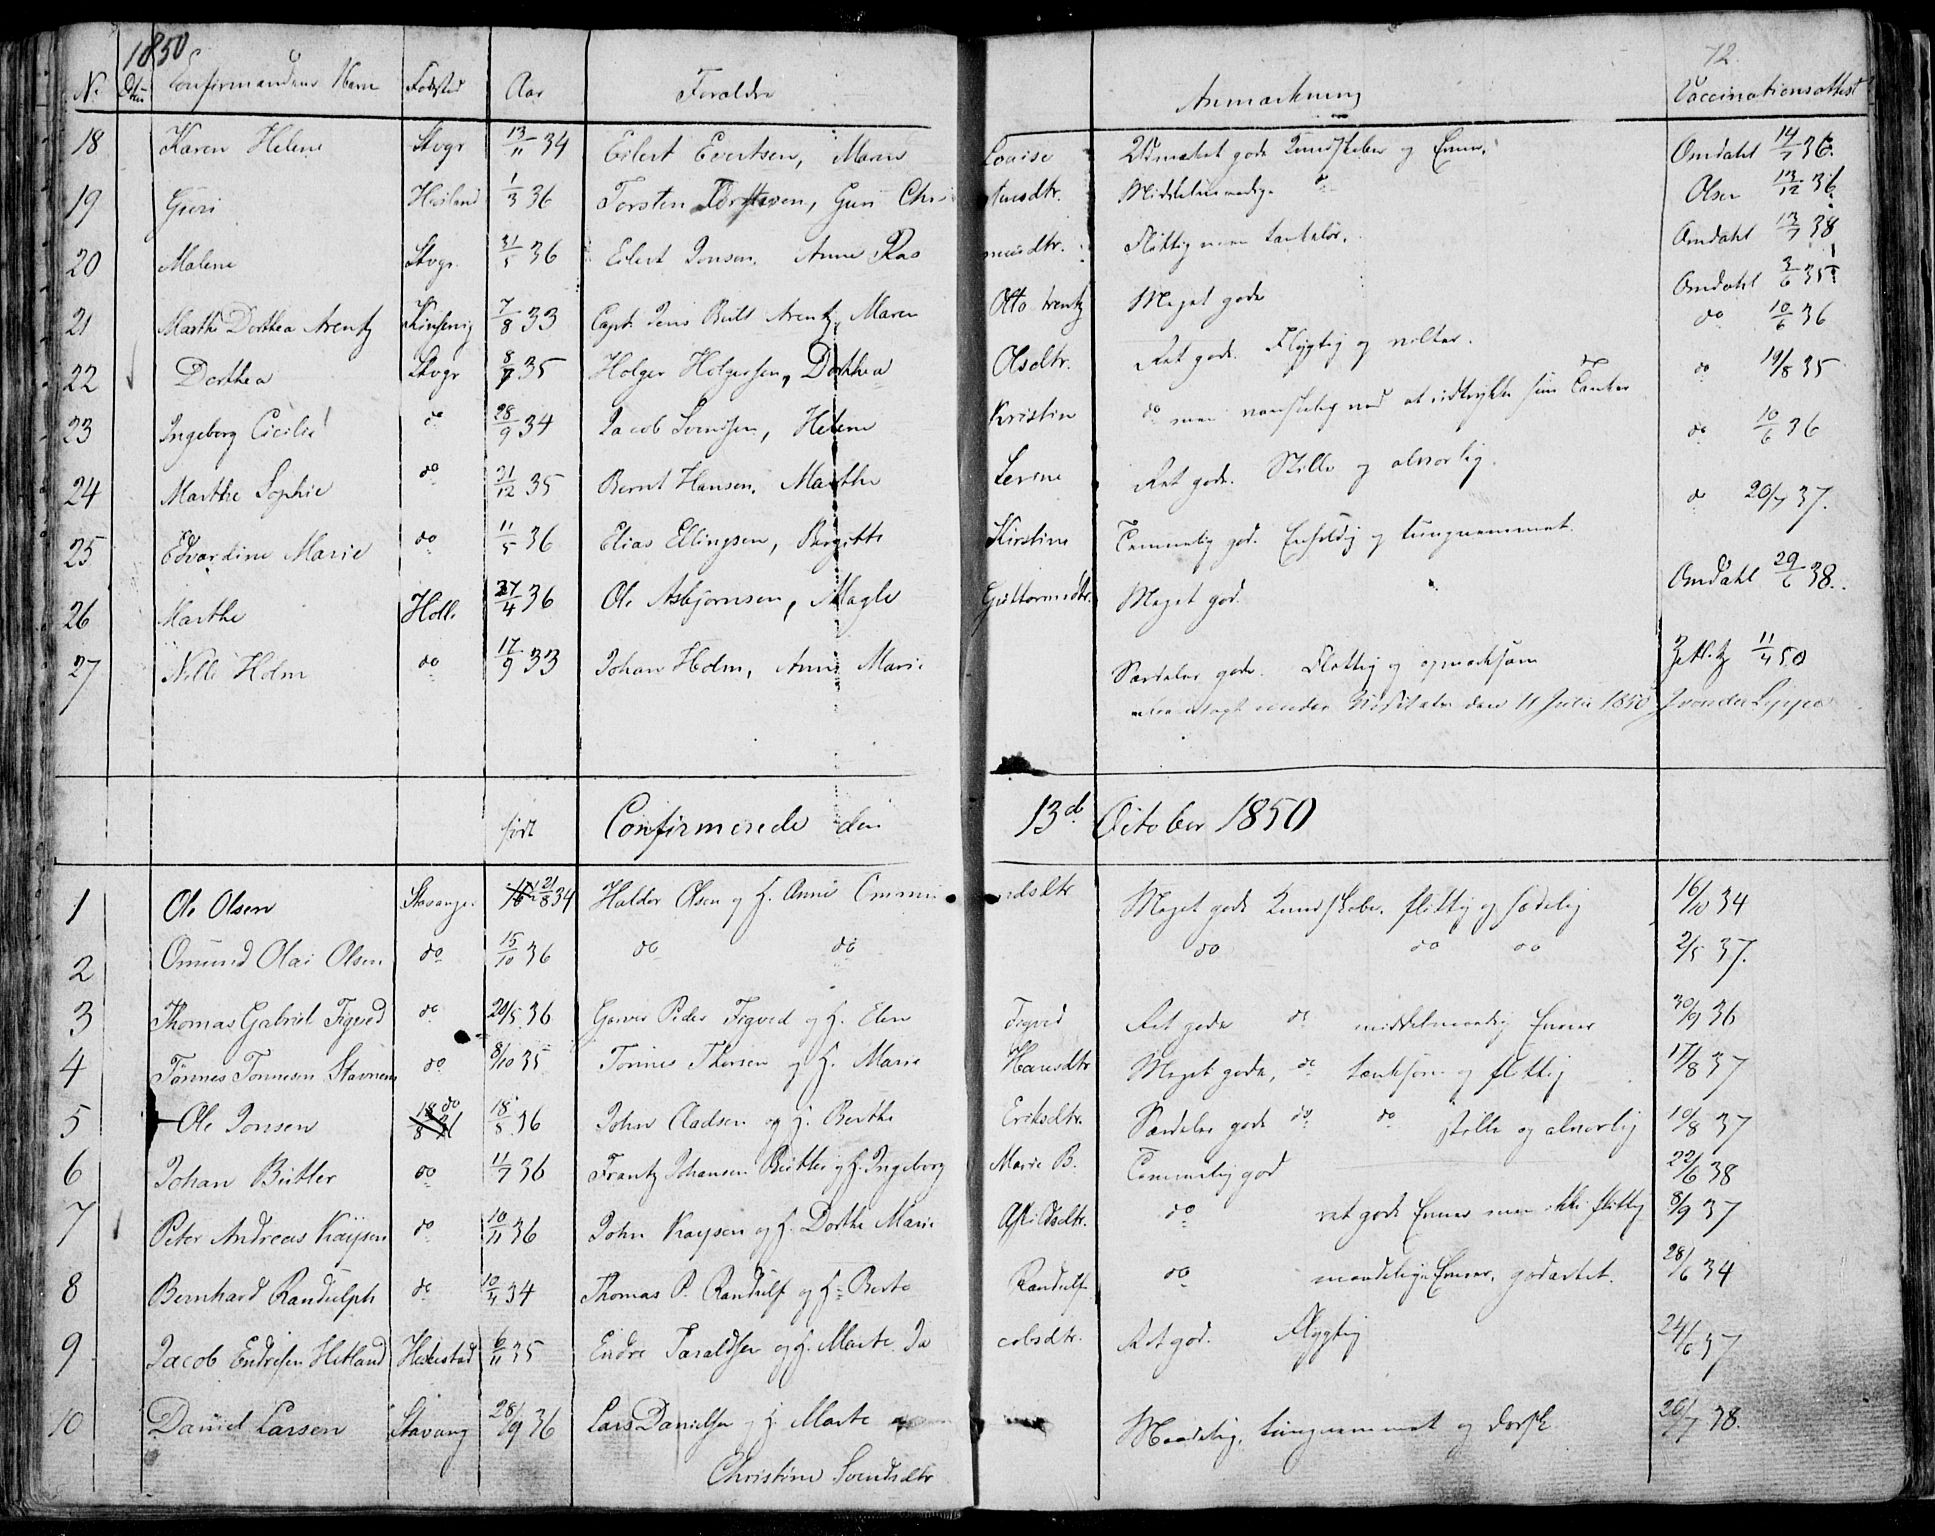 1850
72.
No Confirmandens Navn Fødsted Aar Forældre Anmærkning Vaccinationsattest
18 Karen Helene Stvgr 13/11 34 Eilert Evertsen, Maren Louise Udmærket gode Kundskaber og Evner. Omdahl 14/7 36.
19 Guri Høiland 1/3 36 Torsten Torstensen, Guri Christensdtr. Middelmaadige do Olsen 13/12 36
20 Malene Stvgr. 31/5 36 Eilert Jonsen. Anne Rasmusdtr. Flittig men tankeløs. Omdahl 13/7 38
21 Marthe Dorthea Arentz Kinservig 7/8 33 Capt. Jens Bull Arentz, Maren Otto Arentz Meget gode Omdahl 3/6 35
22 Dorthea Stvgr 8/7 35 Holger Holgersen, Dorthea Olsdtr. Ret gode. Flygtig og do 10/6 36
23 Ingeborg Cicilie do 28/9 34 Jacob Svendsen, Helene Kristine do men vanskelig ved at udtrykke sine Tanker do 19/8 35
24 Marthe Sophie do 21/12 35 Bernt Hansen. Marthe Serine Ret gode. Stille og alvorlig. do 10/6 36
25 Edvardine Marie do 11/5 36 Elias Ellingsen, Birgitte Kirstine Temmelig god. Enfoldig og tungnemmet. do 20/7 37.
26 Marthe Holl. 27/4 36 Ole Asbjørnsen, Magle Guttormsdtr. Meget god. Omdahl 29/6 38.
27 Nille Holm do 17/9 33 Johan Holm, Anne Marie Særdeles gode. Flittig og opmærksom Zetlitz 11/4 50
under Visitats den 11 Juli 1850 J von der Lippe
født Confirmerede den 13d October 1850
1 Ole Olsen Stavanger 21/8 34 Haldor Olsen og H. Anne Ommundsdtr Meget gode Kundskaber. flittig og sædelig 16/10 34
2 Omund Olai Olsen do 15/10 36 do do do do do 2/5 37.
3 Thomas Gabriel Tigved do 20/5 36 Peder Tigved og H. Elen Tigved Ret gode do middelmaadig Evner 30/9 36
4 Tønnes Tønnesen Stavnem do 8/10 35 Tønnes Thorsen og H. Maria Hansdtr Meget gode, do tænksom og flittig 17/8 37
5 Ole Jonsen do 18/5 36 John Oladsen og H. Berthe Eriksdtr. Særdeles gode do do stille og alvorlig 10/8 37
6 Johan Bütler do 11/7 36 Frantz Johansen Bütler og H. Ingeborg Marie B. Temmelig god 22/6 38
7 Peter Andreas Kaysen do 10/11 36 John Kaysen og H. Dorthe Marie do ret gode Evner men ikke flittig 8/9 37
8 Bernhard Randulph do 10/4 34 Thomas P. Randulf og H: Berte Randulf do maadelige Evner, godartet. 28/6 34
9 Jacob Endresen Hetland Hederstad 6/11 35 Endre Taraldsen og H. Marte Jacobsdtr. Ret god. Flygtig 24/6 37
10 Daniel Larsen Stavang 28/9 36 Lars Danielsen og H. Marte Maadelig, tungnemmet og dorsk 20/7 38
Christine Svendsdtr